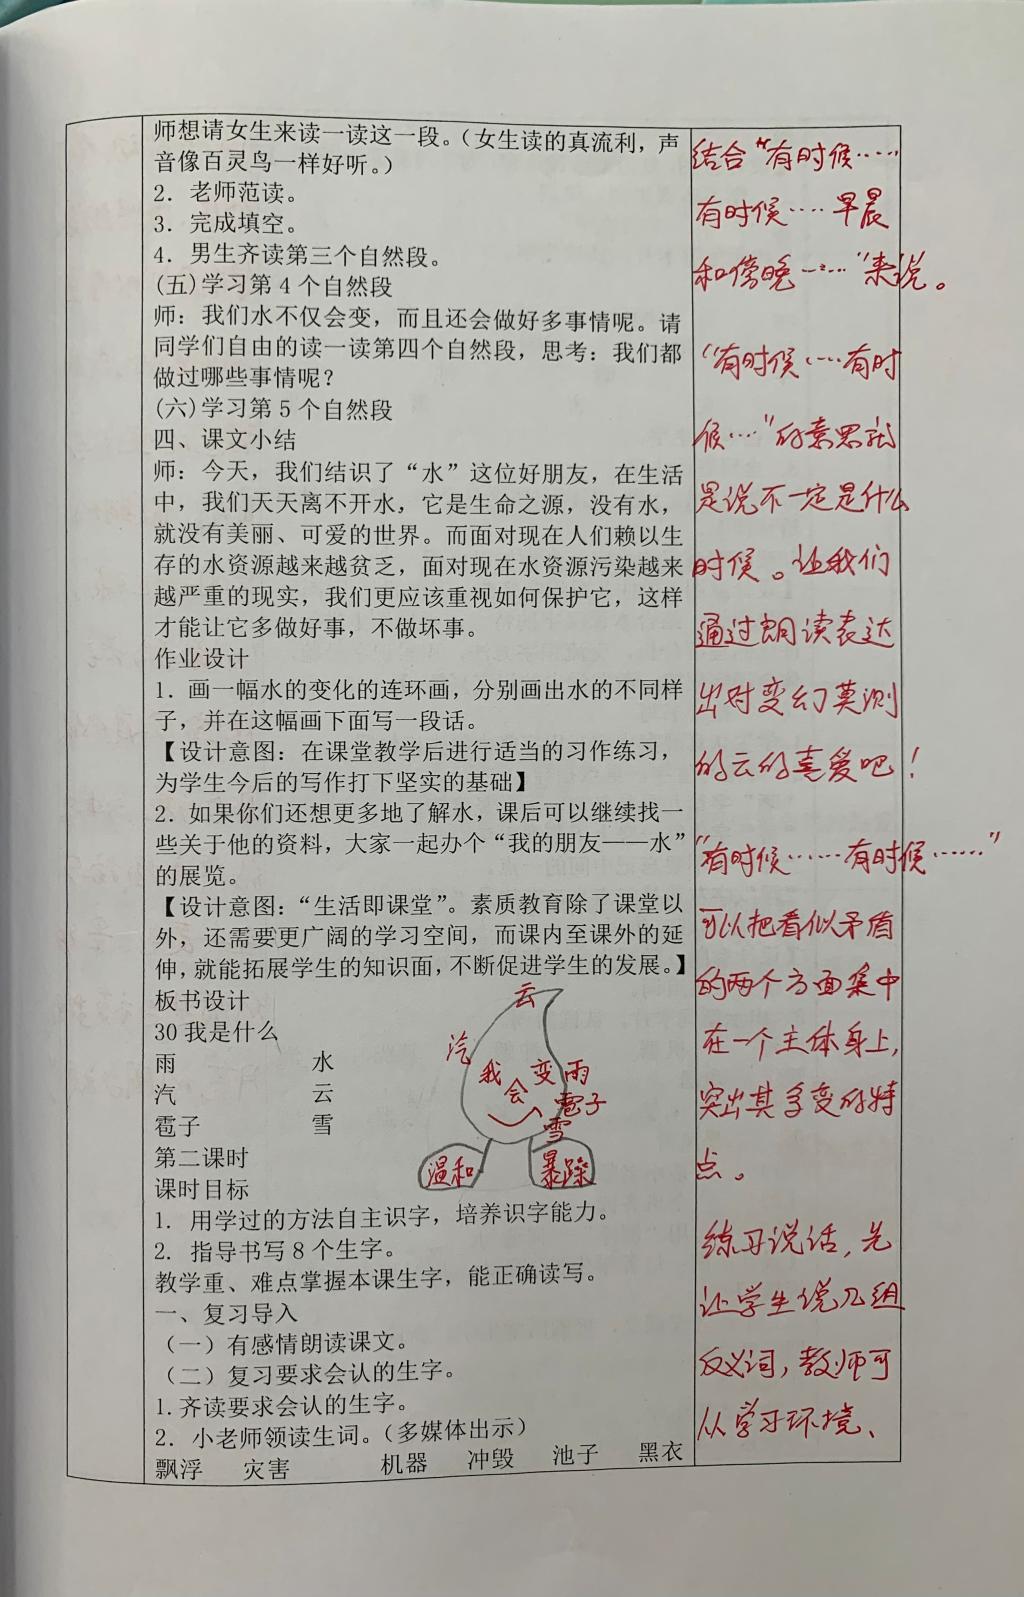 师想请女生来读一读这一段。（女生读的真流利，声
音像百灵鸟一样好听。）
2．老师范读。
3．完成填空。
4．男生齐读第三个自然段。
(五)学习第4个自然段
师：我们水不仅会变，而且还会做好多事情呢。请
同学们自由的读一读第四个自然段，思考：我们都
做过哪些事情呢？
(六)学习第5个自然段
四、课文小结
师：今天，我们结识了“水”这位好朋友，在生活
中，我们天天离不开水，它是生命之源，没有水，
就没有美丽、可爱的世界。而面对现在人们赖以生
存的水资源越来越贫乏，面对现在水资源污染越来
越严重的现实，我们更应该重视如何保护它，这样
才能让它多做好事，不做坏事。
作业设计
1．画一幅水的变化的连环画，分别画出水的不同样
子，并在这幅画下面写一段话。
【设计意图：在课堂教学后进行适当的习作练习，
为学生今后的写作打下坚实的基础】
2．如果你们还想更多地了解水，课后可以继续找一
些关于他的资料，大家一起办个“我的朋友——水”
的展览。
【设计意图：“生活即课堂”。素质教育除了课堂以
外，还需要更广阔的学习空间，而课内至课外的延
伸，就能拓展学生的知识面，不断促进学生的发展。】
板书设计
30我是什么
雨 水
汽 云
雹子 雪
第二课时
课时目标
1．用学过的方法自主识字，培养识字能力。
2．指导书写8个生字。
教学重、难点掌握本课生字，能正确读写。
一、复习导入
（一）有感情朗读课文。
（二）复习要求会认的生字。
1.齐读要求会认的生字。
2．小老师领读生词。（多媒体出示）
飘浮 灾害 机器 冲毁 池子 黑衣
云
汽
我会变
雨
雹子
雪
温和
暴躁
结合“有时候……
有时候……早晨
和傍晚……”来说。
“有时候……有时
候…”的意思就
是说不一定是什么
时候。让我们
通过朗读表达
出对变幻莫测
的云的喜爱吧！
“有时候……有时候……”
可以把看似矛盾
的两个方面集中
在一个主体身上，
突出其多变的特
点。
练习说话，先
让学生说几组
反义词，教师可
从学习环境、